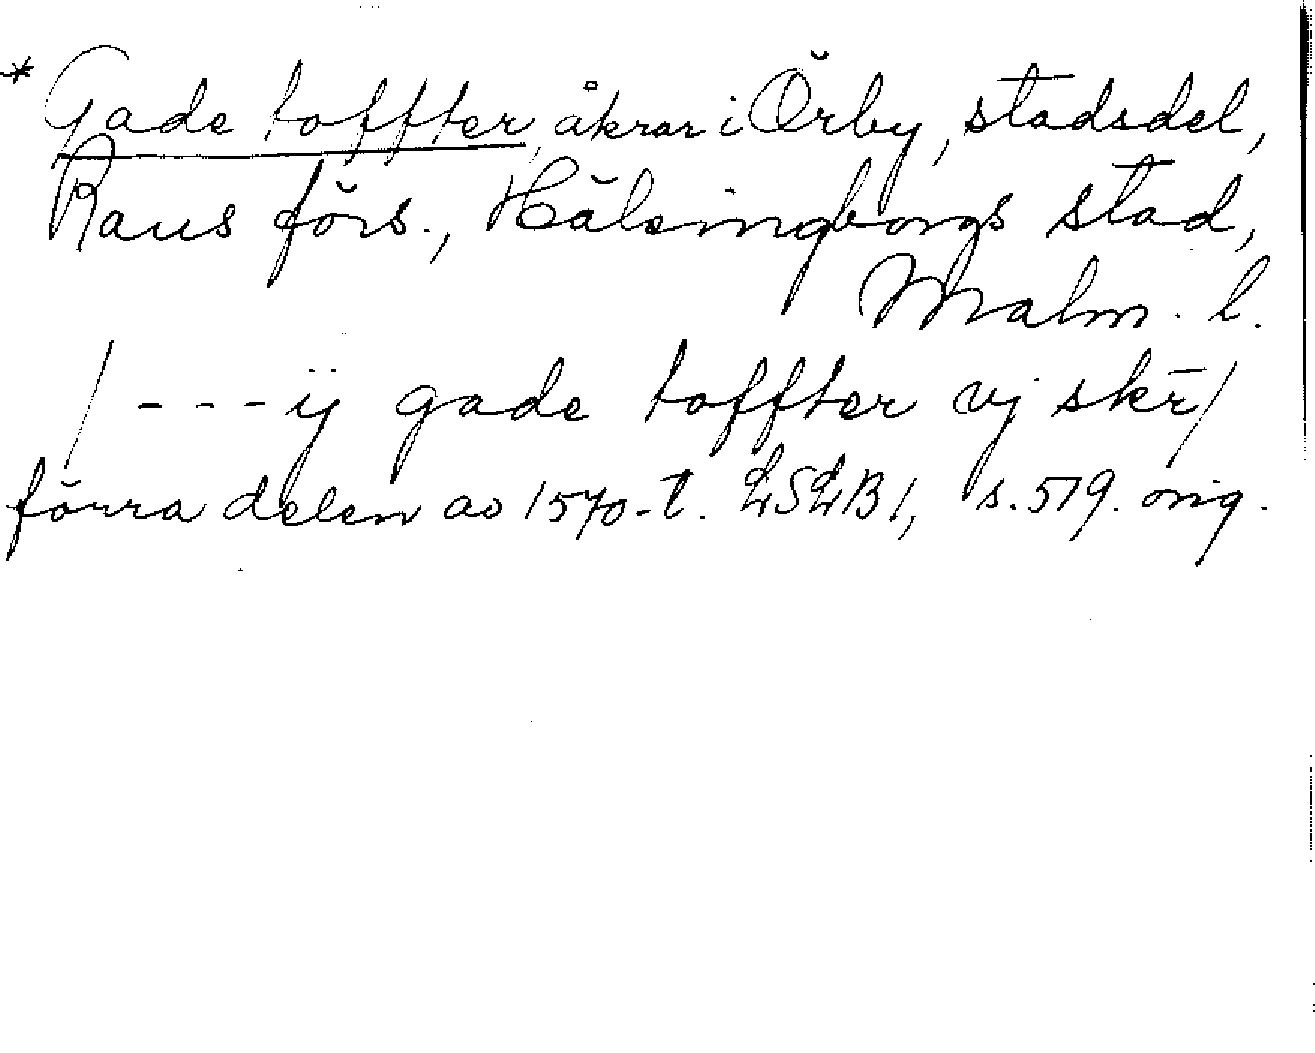 * Gade toffter, åkrar i Örby, stadsdel,
Raus förs., Hälsingborgs stad,
Malm. l.
/ - - - ij gade toffter vj skr̄ /
förra delen av 1570-t. LSLB 1, s. 519. orig.